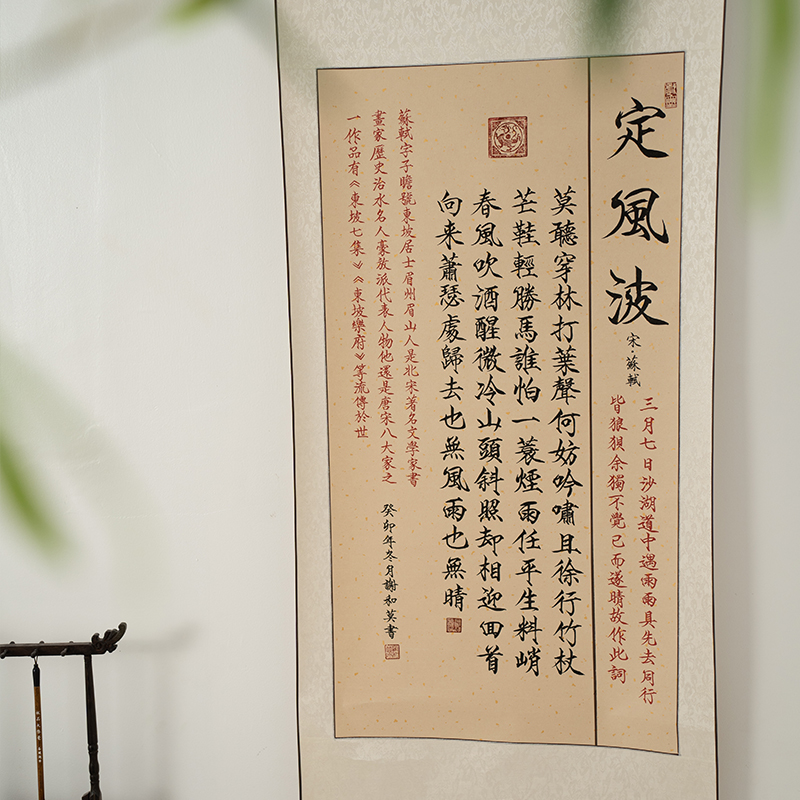 定風波
宋·蘇軾
三月七日沙湖道中遇雨雨具先去同行
皆狼狽余獨不覺已而遂晴故作此詞
莫聽穿林打葉聲何妨吟嘯且徐行竹杖
芒鞋輕勝馬誰怕一蓑煙雨任平生料峭
春風吹酒醒微冷山頭斜照却相迎囬首
向来蕭瑟處歸去也無風雨也無晴
蘇軾字子瞻號東坡居士眉州眉山人是北宋著名文學家書
畫家歷史治水名人豪放派代表人物他還是唐宋八大家之
一作品有《東坡七集》《東坡樂府》等流傳於世
癸卯年冬月謝和英書